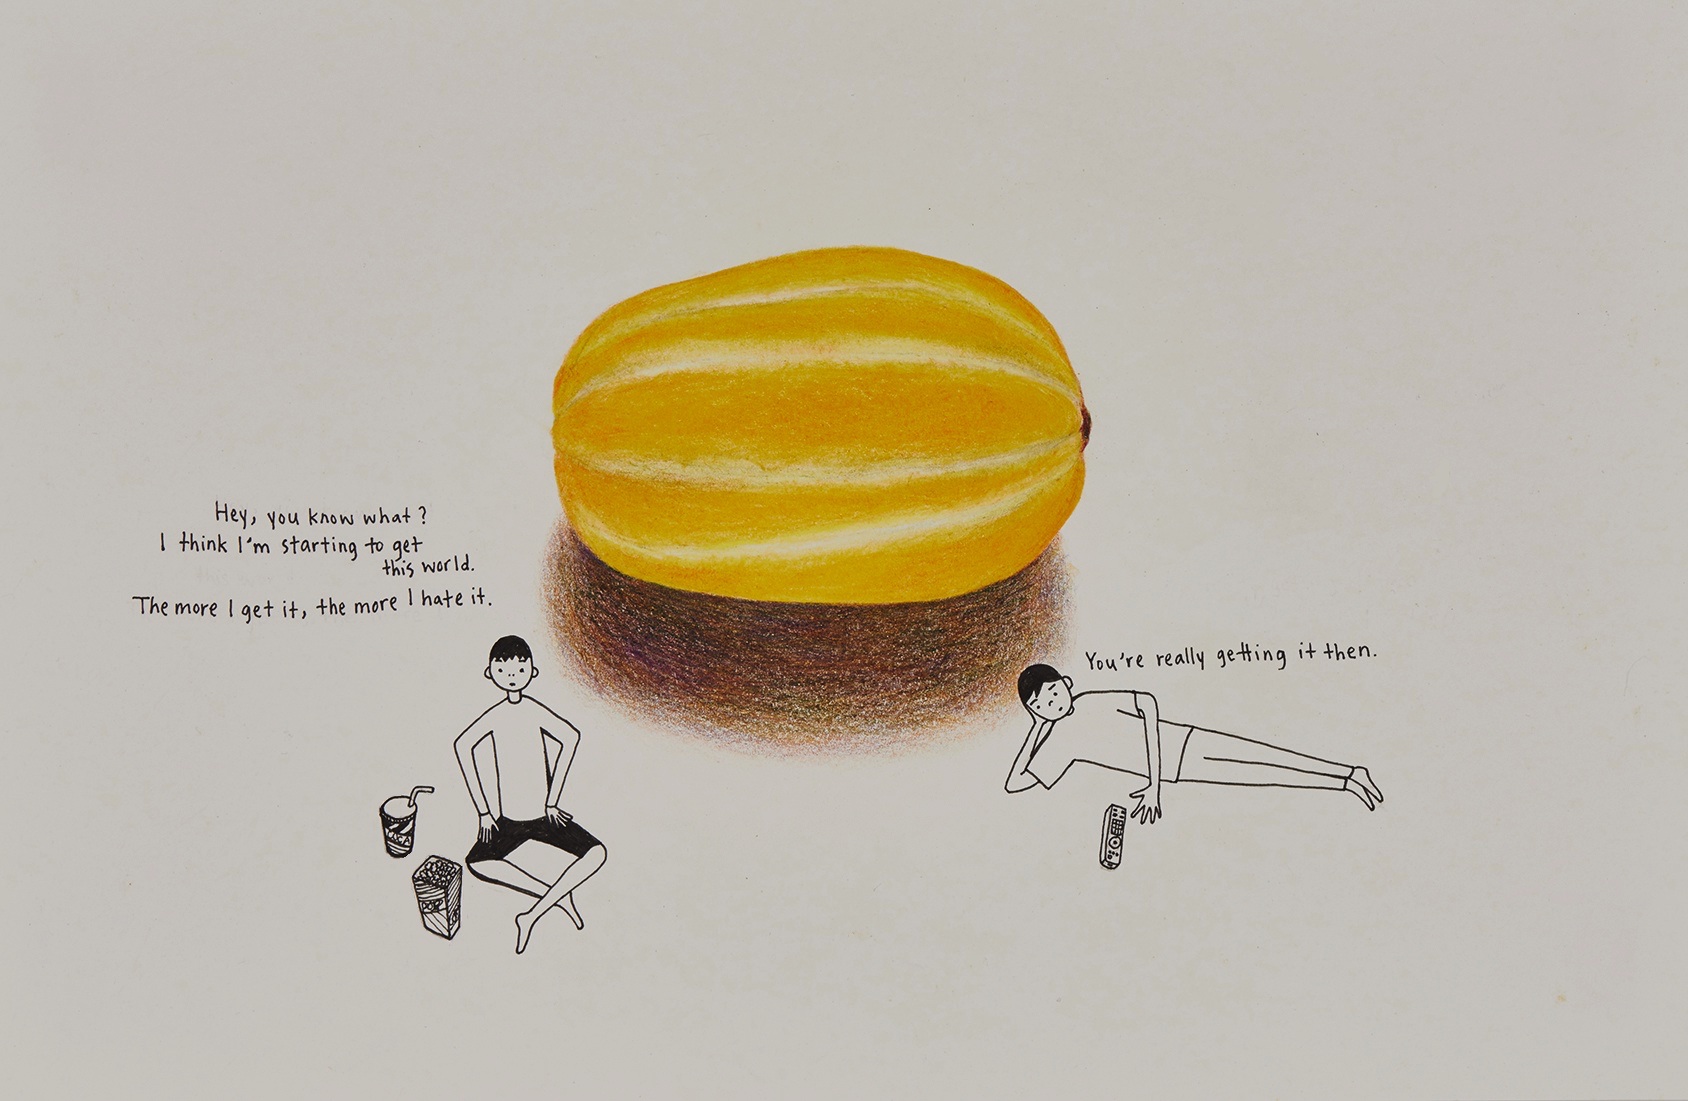 Hey, you know what?
I think I'm starting to get
this world.
The more I get it, the more I hate it.
You're really getting it then.
POP